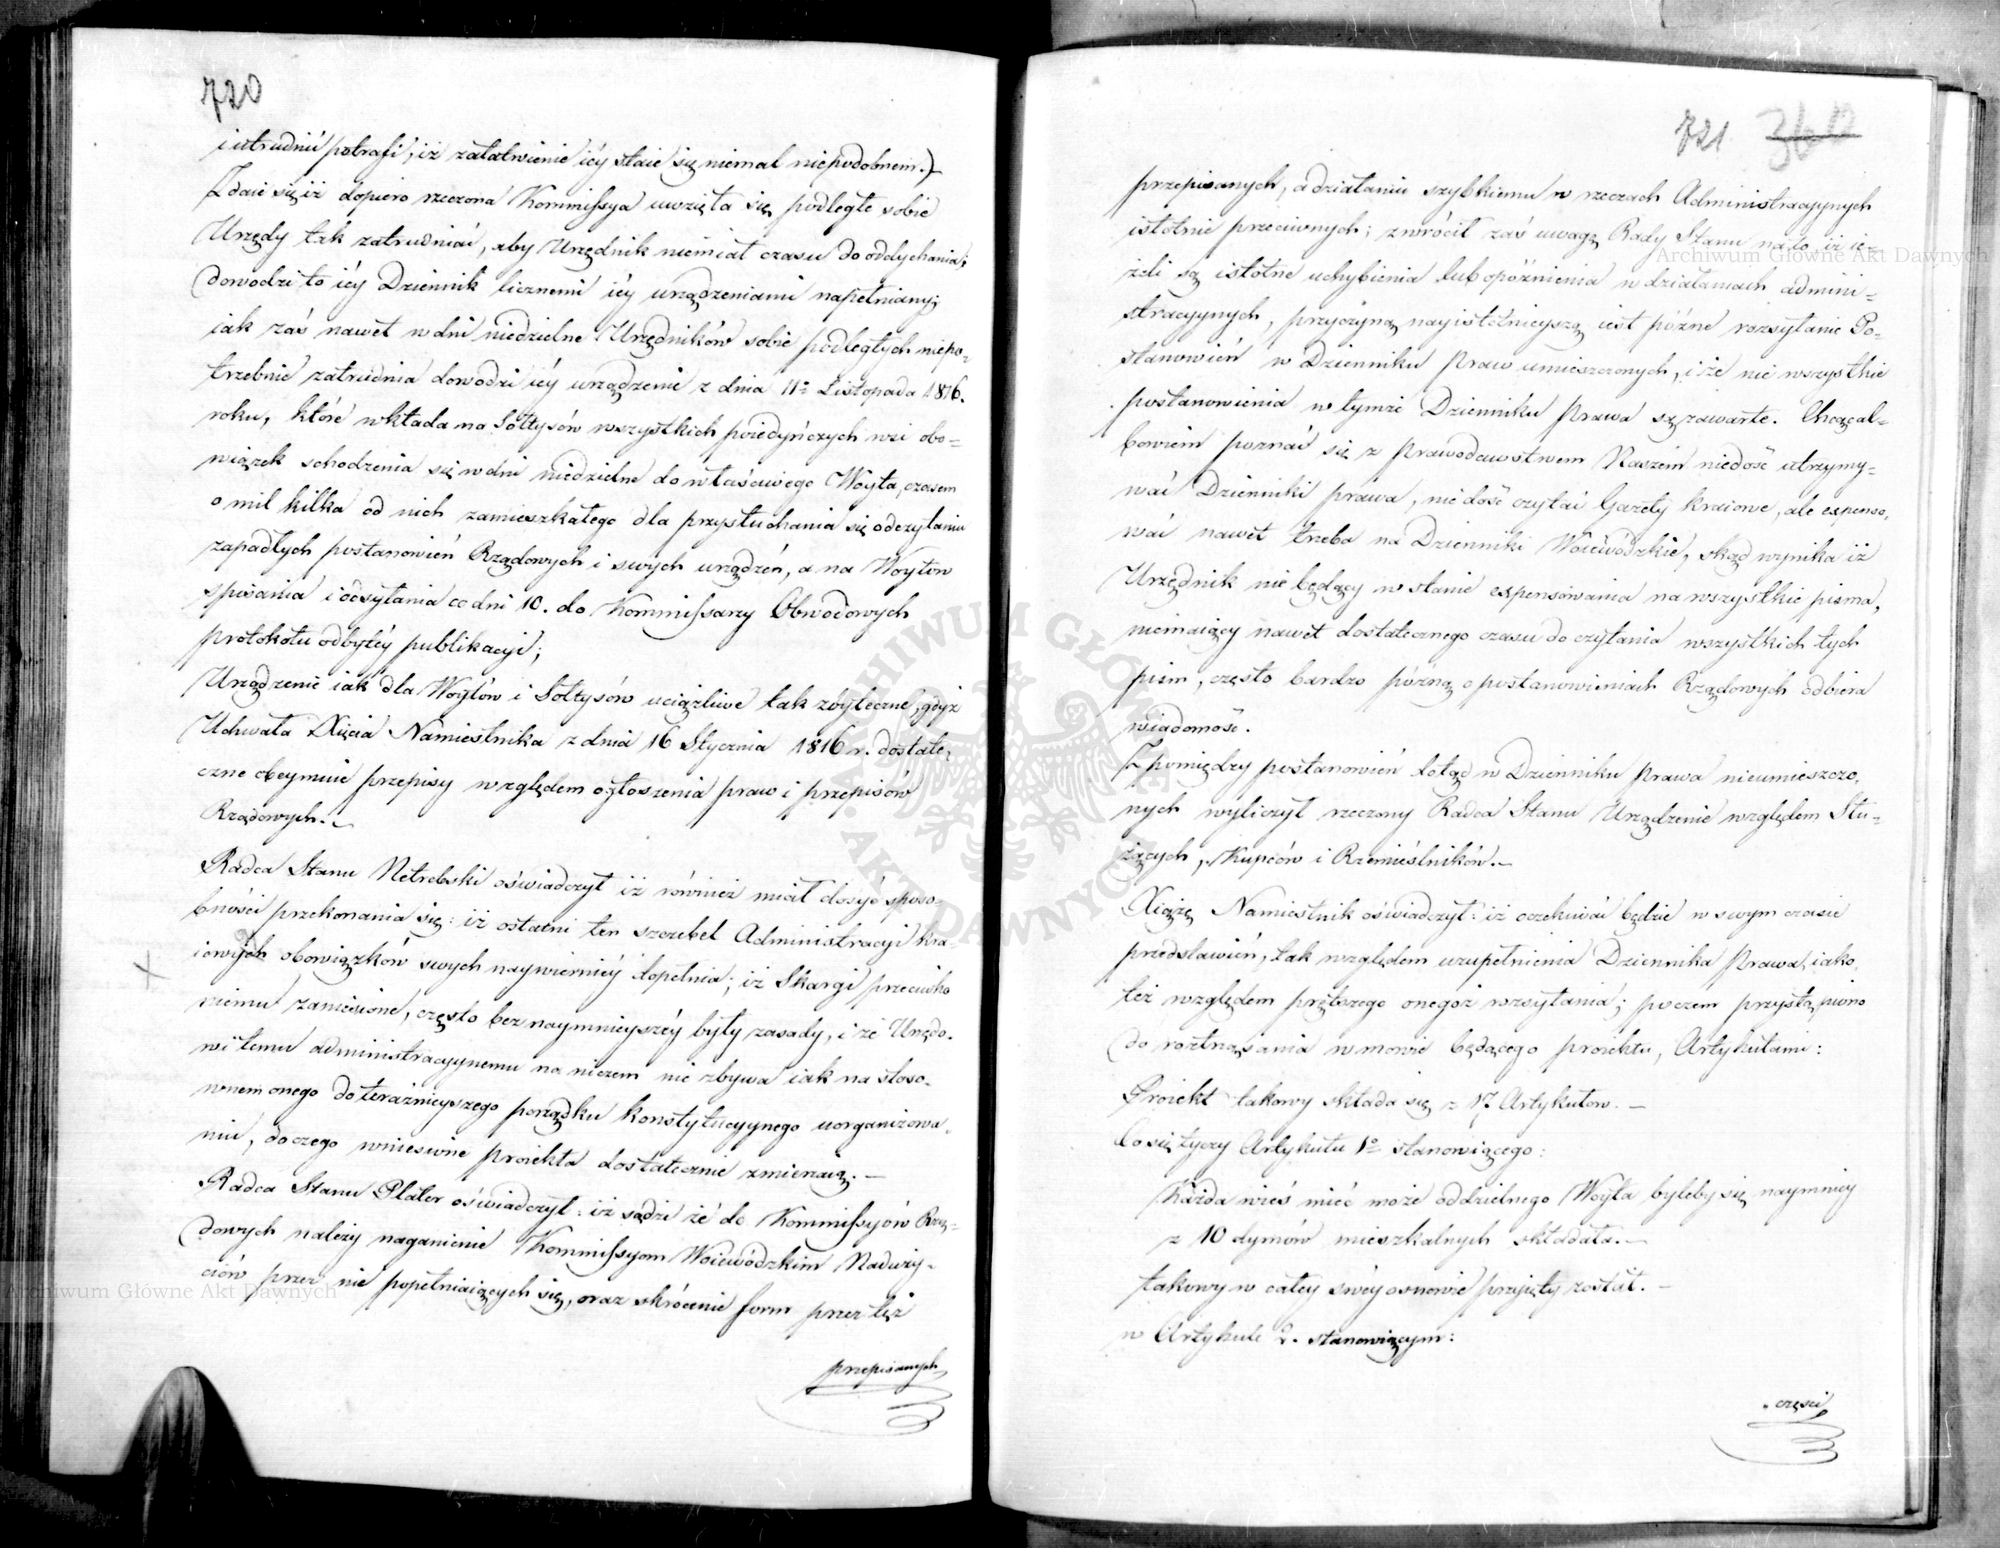 720
i utrudnić potrafi, iż załatwienie iéy staie się niemal niepodobnem.)
Zdaie się iż dopiero rzeczona Kommissya uwzięta się podległe sobie
Urzędy tak zatrudniać, aby Urzędnik niemiał czasu do oddychania;
dowodzi to iéy Dziennik licznemi iéy urządzeniami napełniany;
iak zaś nawet w dni niedzielne Urzędników sobie podległych niepo-
trzebnie zatrudnia dowodzi iéy urządzenie z dnia 11º Listopada 1816.
roku, które wkłada na Sołtysów wszystkich poiedyńczych wsi obo-
wiązek schodzenia się w dni niedzielne do właściwego Woyta, czasem
o mil kilka od nich zamieszkałego dla przysłuchania się odczytaniu
zapadłych postanowień Rządowych i swych urządzeń, a na Woytow
spisania i odsyłania co dni 10. do Kommissarzy Obwodowych
protokołu odbytéy publikacyi;
Urządzenie iak dla Woytów i Sołtysów uciążliwe tak zbyteczne, gdyż
Uchwała Xięcia Namiestnika z dnia 16 Stycznia 1816 r. dostate-
czne obeymuie przepisy względem ogłoszenia praw i przepisów
Rządowych.
Radca Stanu Netrebski oświadczył iż również miał dosyć sposo-
bności przekonania się: iż ostatni ten szczebel Administracyi kra-
iowych obowiązków swych naywierniéy dopełnia; iż Skargi przeciwko
niemu zaniesione, często bez naymnieyszéy były zasady, i że Urzędo-
wi temu administracyynemu na niczem nie zbywa iak na stoso-
wnem onego do teraźnieyszego porządku konstytucyynego uorganizowa-
niu, do czego wniesione proiekta dostatecznie zmierzaią. —
Radca Stanu Plater oświadczył: iż sądzi że do Kommissyów Rzą-
dowych należy naganienie Kommissyom Woiewódzkim Nadużyi-
ciów przez nie popełniaiących się, oraz skrócenie form przez też
przepisanych
721 360
przepisanych, a działaniu szybkiemu w rzeczach Administracyynych
istotnie przeciwnych; zwrócił zaś uwagę Rady Stanu na to, iż ie-
żeli są istotne uchybienia lub opóźnienia w działaniach admini-
stracyynych, przyczyną nayistotnieyszą iest późne rozsyłanie Po-
stanowień w Dzienniku praw umieszczonych, i że nie wszystkie
postanowienia w tymże Dzienniku prawa są zawarte. Chcąc al-
bowiem poznać się z prawodawstwem Naszém niedość utrzymy-
wać Dzienniki prawa, nie dość czytać Gazety kraiowe, ale expenso-
wać nawet trzeba na Dzienniki Woiewódzkie, skąd wynika iż
Urzędnik nie będący w stanie expensowania na wszystkie pisma,
niemaiący nawet dostatecznego czasu do czytania wszystkich tych
pism, często bardzo późną o postanowieniach Rządowych odbiera
wiadomość.
Zpomiędzy postanowień dotąd w Dzienniku prawa nieumieszczo-
nych wyliczył rzeczony Radca Stanu Urządzenie względem Słu-
żących, Kupców i Rzemieślników.—
Xiążę Namiestnik oświadczył: iż oczekiwać będzie w swym czasie
przedstawień, tak względem uzupełnienia Dziennika prawa, iako-
też względem prętszego onegoż rozsyłania; poczem przystąpiono
do roztrząsania w mowie będącego proiektu, Artykułami:
Proiekt takowy składa się z 17 Artykułow. —
Co się tyczy Artykułu 1º stanowiącego:
Każda wieś mieć może oddzielnego Woyta byleby się naymniey
z 10 dymów mieszkalnych składała.—
takowy w całéy swéy osnowie przyięty został. —
w Artykule 2. stanowiącym:
części
Archiwum Główne Akt Dawnych
Archiwum Główne Akt Dawnych
ARCHIWUM GŁÓWNE AKT DAWNYCH